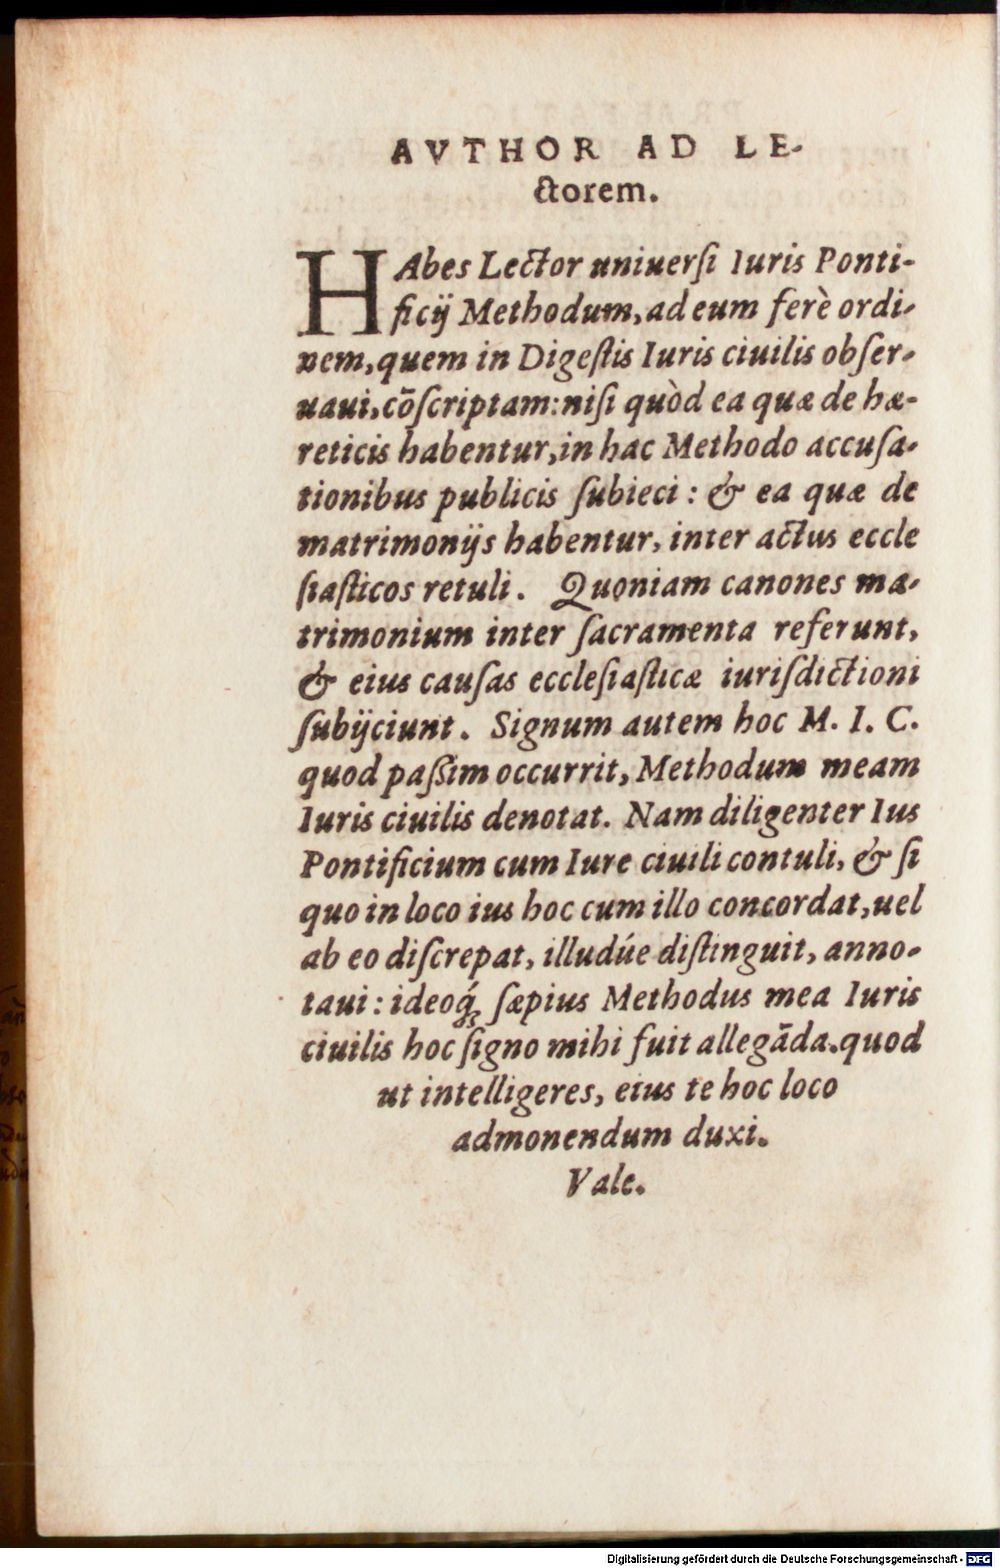 AVTHOR AD LE-
ctorem.
HAbes Lector uniuerſi Iuris Ponti-
ficij Methodum, ad eum ferè ordi-
nem, quem in Digeſtis Iuris ciuilis obſer-
uaui, cōſcriptam: niſi quòd ea quæ de hæ-
reticis habentur, in hac Methodo accuſa-
tionibus publicis ſubieci: & ea quæ de
matrimonijs habentur, inter actus eccle
ſiaſticos retuli. Quoniam canones ma-
trimonium inter ſacramenta referunt,
& eius cauſas eccleſiaſticæ iuriſdictioni
ſubijciunt. Signum autem hoc M. I. C.
quod paſsim occurrit, Methodum meam
Iuris ciuilis denotat. Nam diligenter Ius
Pontificium cum Iure ciuili contuli, & ſi
quo in loco ius hoc cum illo concordat, uel
ab eo diſcrepat, illudúe diſtinguit, anno-
taui: ideoq́ꝫ ſæpius Methodus mea Iuris
ciuilis hoc ſigno mihi fuit allegāda. quod
ut intelligeres, eius te hoc loco
admonendum duxi.
Vale.
Digitalisierung gefördert durch die Deutsche Forschungsgemeinschaft - DFG